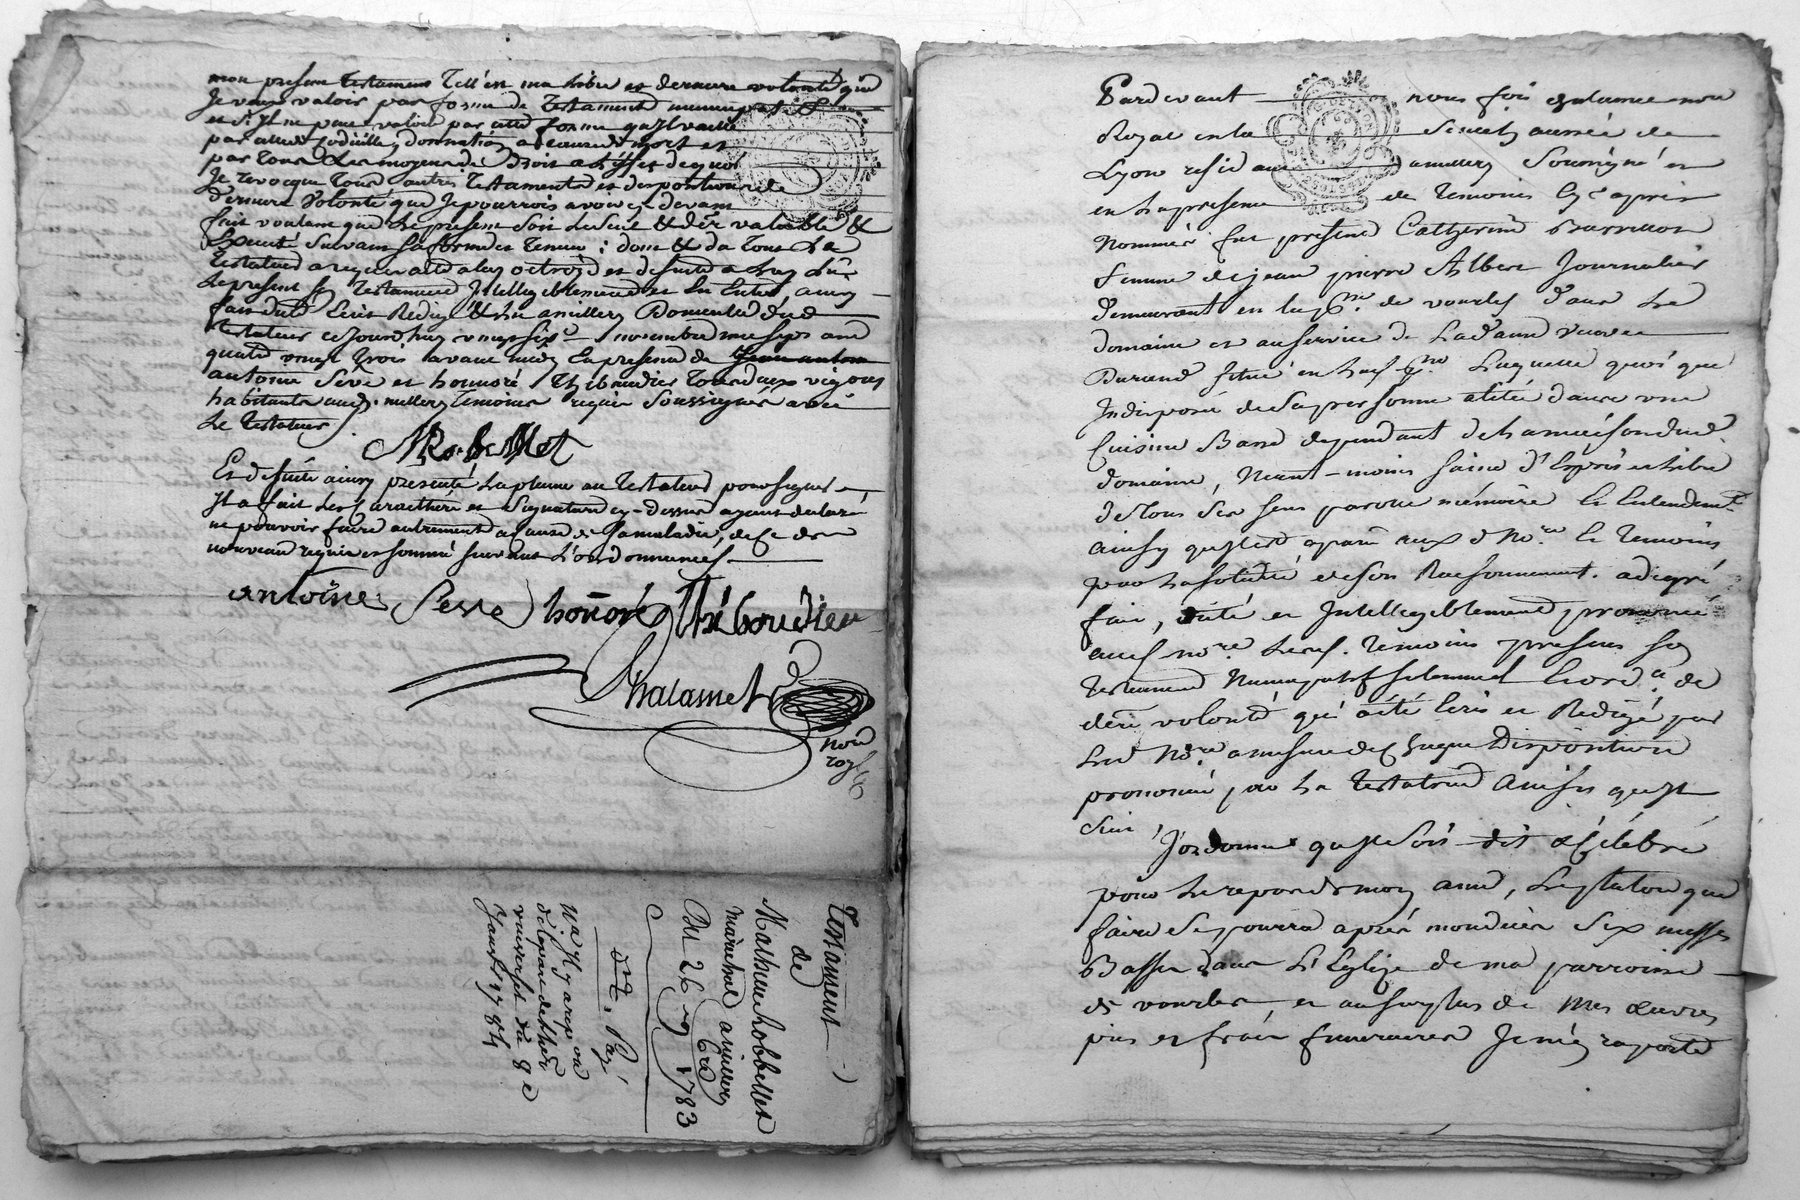 mon present testament Tell'est ma libre et derniere volonté que
Je veux valoir par forme de Testament nuncupatif &
et s'Il ne peut valoir par cette forme qu'Il vaille
par celle de Codicille, donnation a cause de mort et
par tous Les moyens de Droit a L'effet de quoi
Je revocque tous autres Testaments et dispositions de
derniere Volonté que Je pourrois avoir cy-devant
fait voulant que Le present Soit Le Seul & dër valable &
Executé Suivant Sa forme et Teneur; dont & du Tout Le
Testateur a requis acte a luy octroyé et de suitte a Luy Lû
Le present Son Testament Intelligiblement et En Entier ainsy
fait dicté Ecrit Redigé & Lû a millery Domicille dud
testateur ce Jourd'huy vingt six novembre mil sept cent
quatre vingt trois avant midy En presence de
antoine Seve et honnoré Thiboudier Tous deux vignerons
habitants aud. millery temoins requis Soussignés avec
Le Testateur
M Robellet
Et de suitte ainsy presenté La plume au Testateur pour signer
Il a fait Les Caractheres et Signature cy-dessus ayant declaré
ne pouvoir faire autrement a Cause de Sa maladie, de Ce de
nouveau requis et sommé suivant L'ordonnance.
antoine Seve honnoré thiboudier
Chalamet
nore
royal
Testament
de
Mathieu Robbellet
marechal a millery
Du 26 9bre 1783
Pardevant nous fois chalamet notr
Royal en la Senechaussée de
Lyon residant a millery Soussigné et
en La presence des Temoins Cy-après
nommés fut presente Catherine
femme de jean pierre Albert Journalier
demeurant en la psse de vourles dans Le
domaine et au service de La dame veuve
Durand situé en lad psse Laquelle quoi que
Indisposée de Sa personne alitée dans une
Cuisine Basse dependant de La maison dud.
domaine, Neant-moins Saine d'Esprit et Libre
de Tous Ses Sens parole mémoire Et Entendemt
ainsy qu'Il est apparu aux d No.re Et Temoins
par La solidité de son Raisonnement. a de gré
fait, dicté et Intelligiblement prononcé
aud. no.re Lesd. Temoins presents son
testament Nuncupatif solemnel Et ord.ce de
dere volonté qui a été Ecrit et Redigé par
Led No.re a mesure de Chaque Disposition
prononcée par La Testatrice Ainsi qu'Il
Suit,
J'ordonne qu'Il Soit dit & Célébré
pour Le repos de mon ame, Le plutot que
faire Se pourra après mon décès Six messes
Basses dans L'Eglize de ma parroisse
de vourles, et au surplus de Mes œuvres
pies et frais funeraires Je m'en raporte